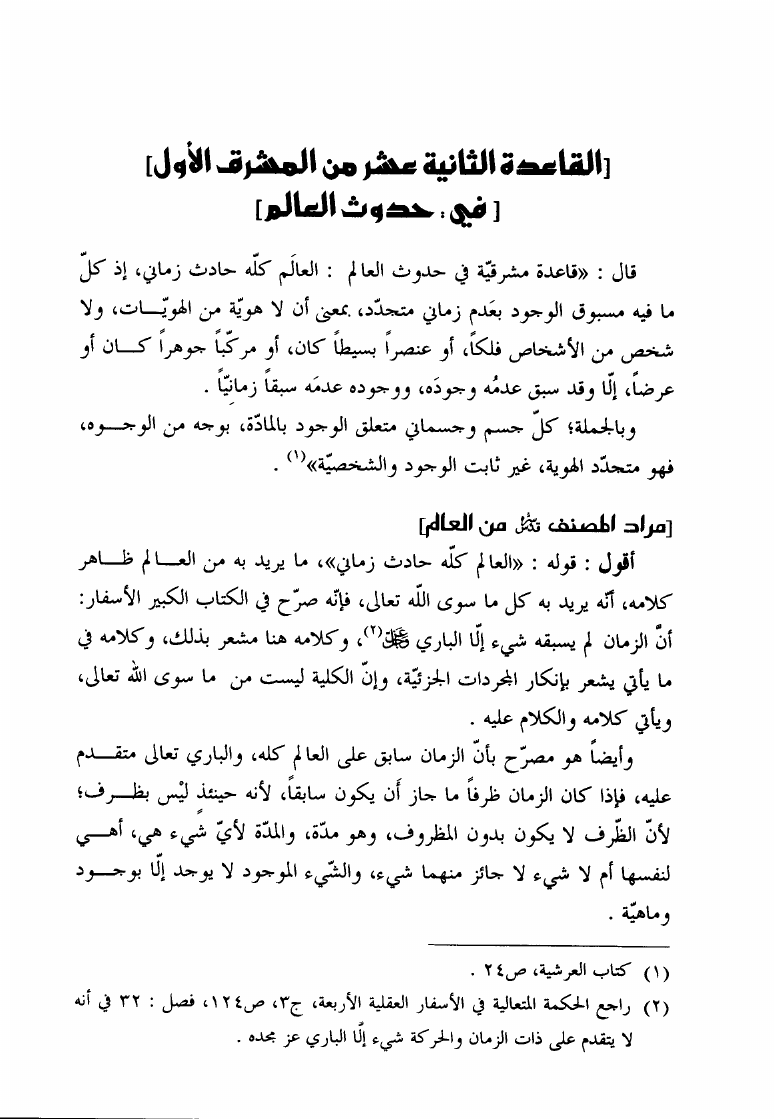 [القاعدة الثانية عشر من المشرق الأول]
[في: حدوث العالم]
قال : «قاعدة مشرقيّة في حدوث العالم : العالَم كلّه حادث زماني، إذ كلّ
ما فيه مسبوق الوجود بعَدم زماني متجدّد، بمعنى أن لا هويّة من الهويّـات، ولا
شخص من الأشخاص فلكاً، أو عنصراً بسيطاً كان، أو مركّباً جوهراً كـان أو
عرضاً، إلّا وقد سبق عدمُه وجودَه، ووجوده عدمَه سبقاً زمانيّاً .
وبالجملة؛ كلّ جسم وجسماني متعلق الوجود بالمادّة، بوجه من الوجـوه،
فهو متجدّد الهوية، غير ثابت الوجود والشخصيّة»(١) .
[مراد المصنف تدّثر من العالم]
أقول : قوله : «العالم كلّه حادث زماني»، ما يريد به من العـالم ظـاهر
كلامه، أنّه يريد به كل ما سوى اللّه تعالى، فإنّه صرّح في الكتاب الكبير الأسفار:
أنّ الزمان لم يسبقه شيء إلّا الباري ﷻ(٢)، وكلامه هنا مشعر بذلك، وكلامه في
ما يأتي يشعر بإنكار المجردات الجزئيّة، وإنّ الكلية ليست من ما سوى الله تعالى،
ويأتي كلامه والكلام عليه .
وأيضاً هو مصرّح بأنّ الزمان سابق على العالم كله، والباري تعالى متقـدم
عليه، فإذا كان الزمان ظرفاً ما جاز أن يكون سابقاً، لأنه حينئذ ليْس بظـرف؛
لأنّ الظّرف لا يكون بدون المظروف، وهو مدّة، والمدّة لأيّ شيء هي، أهـي
لنفسها أم لا شيء لا جائز منهما شيء، والشّيء الموجود لا يوجد إلّا بوجـود
وماهيّة .
(١) كتاب العرشية، ص٢٤ .
(٢) راجع الحكمة المتعالية في الأسفار العقلية الأربعة، ج٣، ص١٢٤، فصل : ٣٢ في أنه
لا يتقدم على ذات الزمان والحركة شيء إلّا الباري عز مجده .